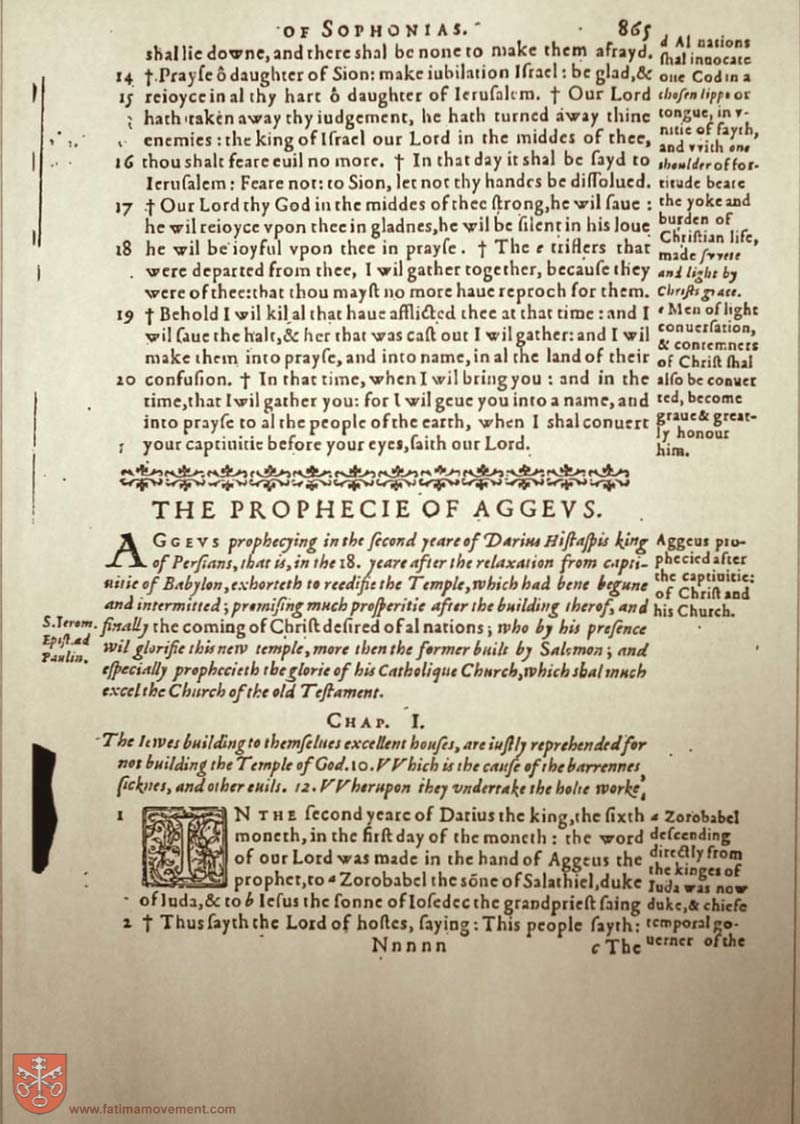 OF SOPHONIAS. 865
shal lie downe, and there shal be none to make them afrayd.
14 † Prayse ô daughter of Sion: make iubilation Israel: be glad, &
15 reioyce in al thy hart ô daughter of Ierusalem. † Our Lord
hath taken away thy iudgement, he hath turned away thine
enemies: the king of Israel our Lord in the middes of thee,
16 thou shalt feare euil no more. † In that day it shal be sayd to
Ierusalem: Feare not: to Sion, let not thy handes be dissolued.
17 † Our Lord thy God in the middes of thee strong, he wil saue:
he wil reioyce vpon thee in gladnes, he wil be silent in his loue
18 he wil be ioyful vpon thee in prayse. † The e triflers that
were departed from thee, I wil gather together, because they
were of thee: that thou mayst no more haue reproch for them.
19 † Behold I wil kil al that haue afflicted thee at that time: and I
wil saue the halt, & her that was cast out I wil gather: and I wil
make them into prayse, and into name, in al the land of their
20 confusion. † In that time, when I wil bring you: and in the
time, that I wil gather you: for I wil geue you into a name, and
into prayse to al the people of the earth, when I shal conuert
your captiuitie before your eyes, saith our Lord.
d Al nations
shal inuocate
one God in a
chosen lippe or
tongue, in v-
nitie of fayth,
and vvith one
shoulder of for-
titude beare
the yoke and
burden of
Christian life,
made svvete
and light by
Christs grace.
e Men of light
conuersation,
& contemners
of Christ shal
also be conuer
ted, become
graue & great-
ly honour
him.
THE PROPHECIE OF AGGEVS.
AGGEVS prophecying in the second yeare of Darius Histaspis king
of Persians, that is, in the 18. yeare after the relaxation from capti-
uitie of Babylon, exhorteth to reedifie the Temple, which had bene begune
and intermitted; promising much prosperitie after the building therof, and
finally the coming of Christ desired of al nations; who by his presence
wil glorifie this new temple, more then the former built by Salomon; and
especially prophecieth the glorie of his Catholique Church, which shal much
excel the Church of the old Testament.
Aggeus pro-
phecied after
the captiuitie:
of Christ and
his Church.
S. Ierom.
Epist. ad
Paulin.
CHAP. I.
The Iewes building to themselues excellent houses, are iustly reprehended for
not building the Temple of God. 10. VVhich is the cause of the barrennes,
sicknes, and other euils. 12. VVherupon they vndertake the holie worke.
1 IN THE second yeare of Darius the king, the sixth
moneth, in the first day of the moneth: the word
of our Lord was made in the hand of Aggeus the
prophet, to a Zorobabel the sõne of Salathiel, duke
of Iuda, & to b Iesus the sonne of Iosedec the grandpriest saing
2 † Thus sayth the Lord of hostes, saying: This people sayth:
a Zorobabel
descending
directly from
the kinges of
Iuda was now
duke, & chiefe
temporal go-
uerner of the
Nnnnn c The
www.fatimamovement.com